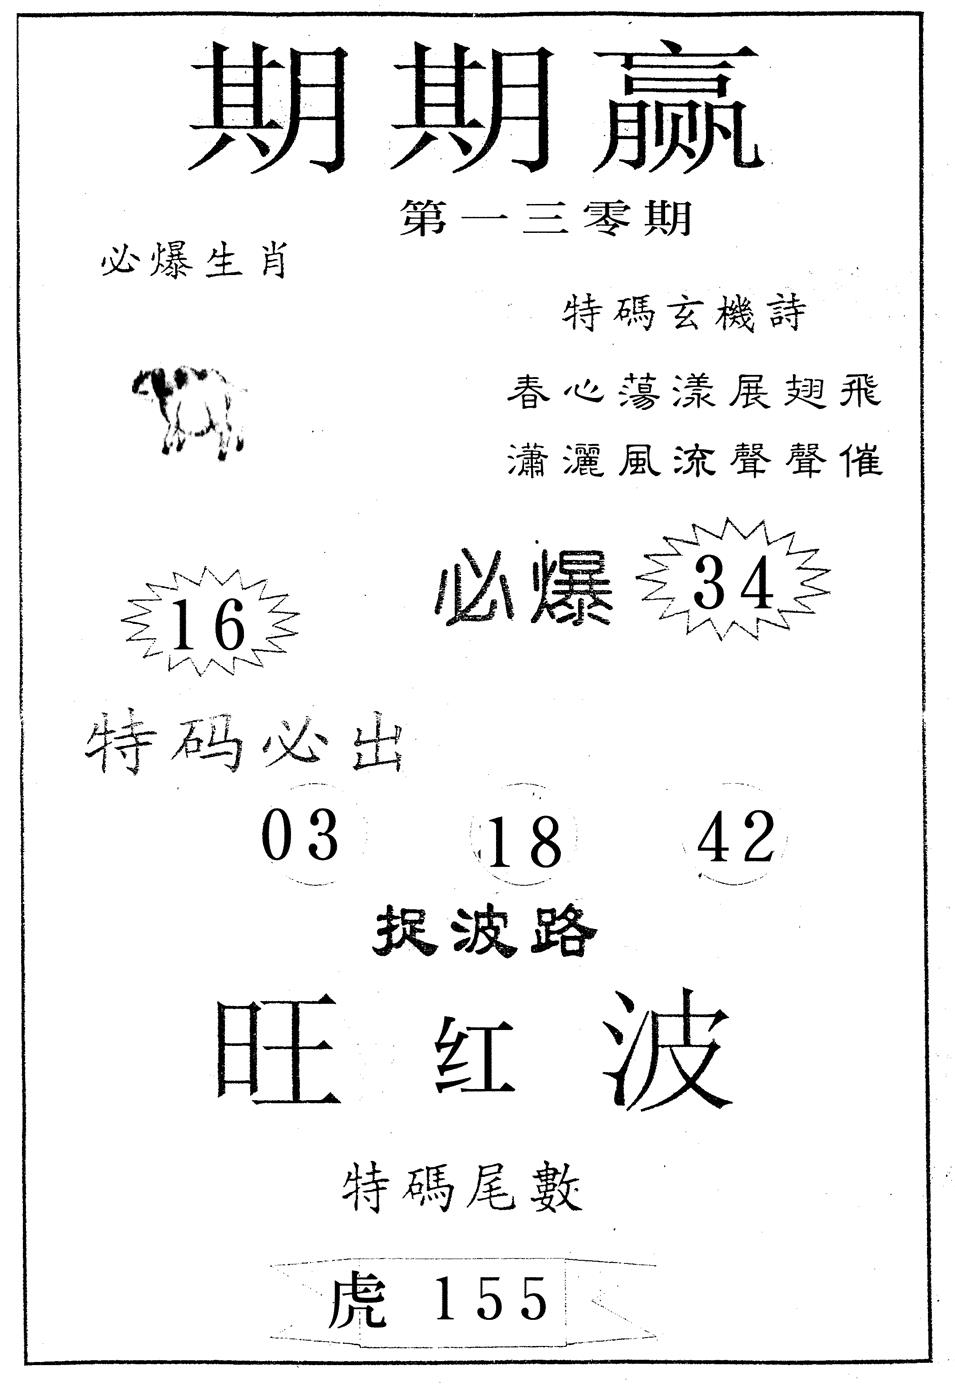 期期赢
第一三零期
必爆生肖
特碼玄機詩
春心蕩漾展翅飛
瀟灑風流聲聲催
必爆 34
16
特码必出
03 18 42
捉波路
旺红波
特碼尾數
虎 155